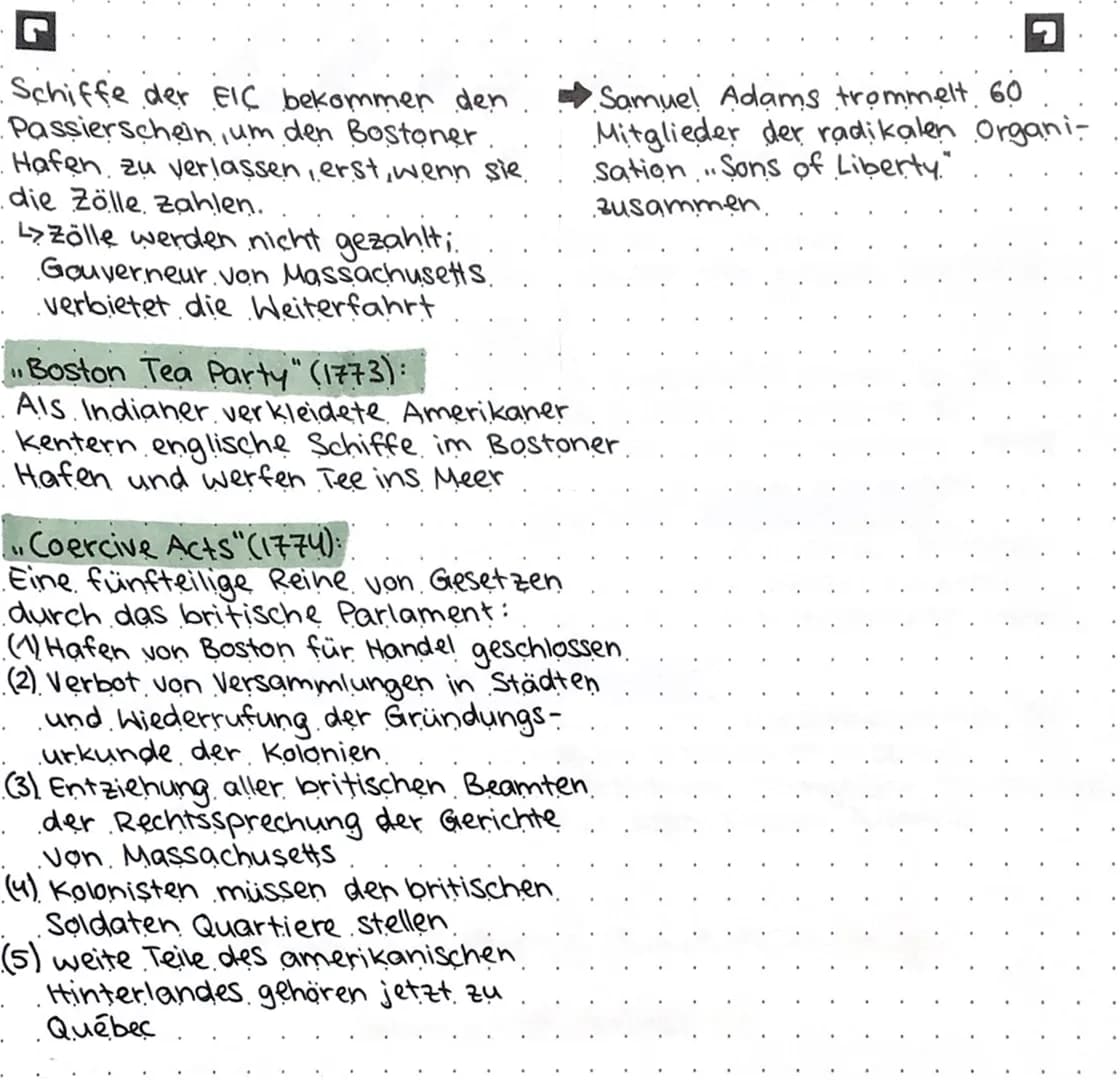 Schiffe der EIC bekommen den
Passierschein, um den Bostoner
Hafen zu verlassen, erst, wenn sie
die Zölle zahlen.
↳ Zölle werden nicht gezahlt;
Gouverneur von Massachusetts
verbietet die Weiterfahrt
➡ Samuel Adams trommelt 60
Mitglieder der radikalen Organi-
sation „Sons of Liberty"
zusammen
„Boston Tea Party" (1773):
Als Indianer verkleidete Amerikaner
kentern englische Schiffe im Bostoner
Hafen und werfen Tee ins Meer
„Coercive Acts" (1774):
Eine fünfteilige Reihe von Gesetzen
durch das britische Parlament:
(1) Hafen von Boston für Handel geschlossen
(2) Verbot von Versammlungen in Städten
und Wiederrufung der Gründungs-
urkunde der Kolonien
(3) Entziehung aller britischen Beamten
der Rechtssprechung der Gerichte
von Massachusetts
(4) Kolonisten müssen den britischen
Soldaten Quartiere stellen
(5) weite Teile des amerikanischen
Hinterlandes gehören jetzt zu
Québec